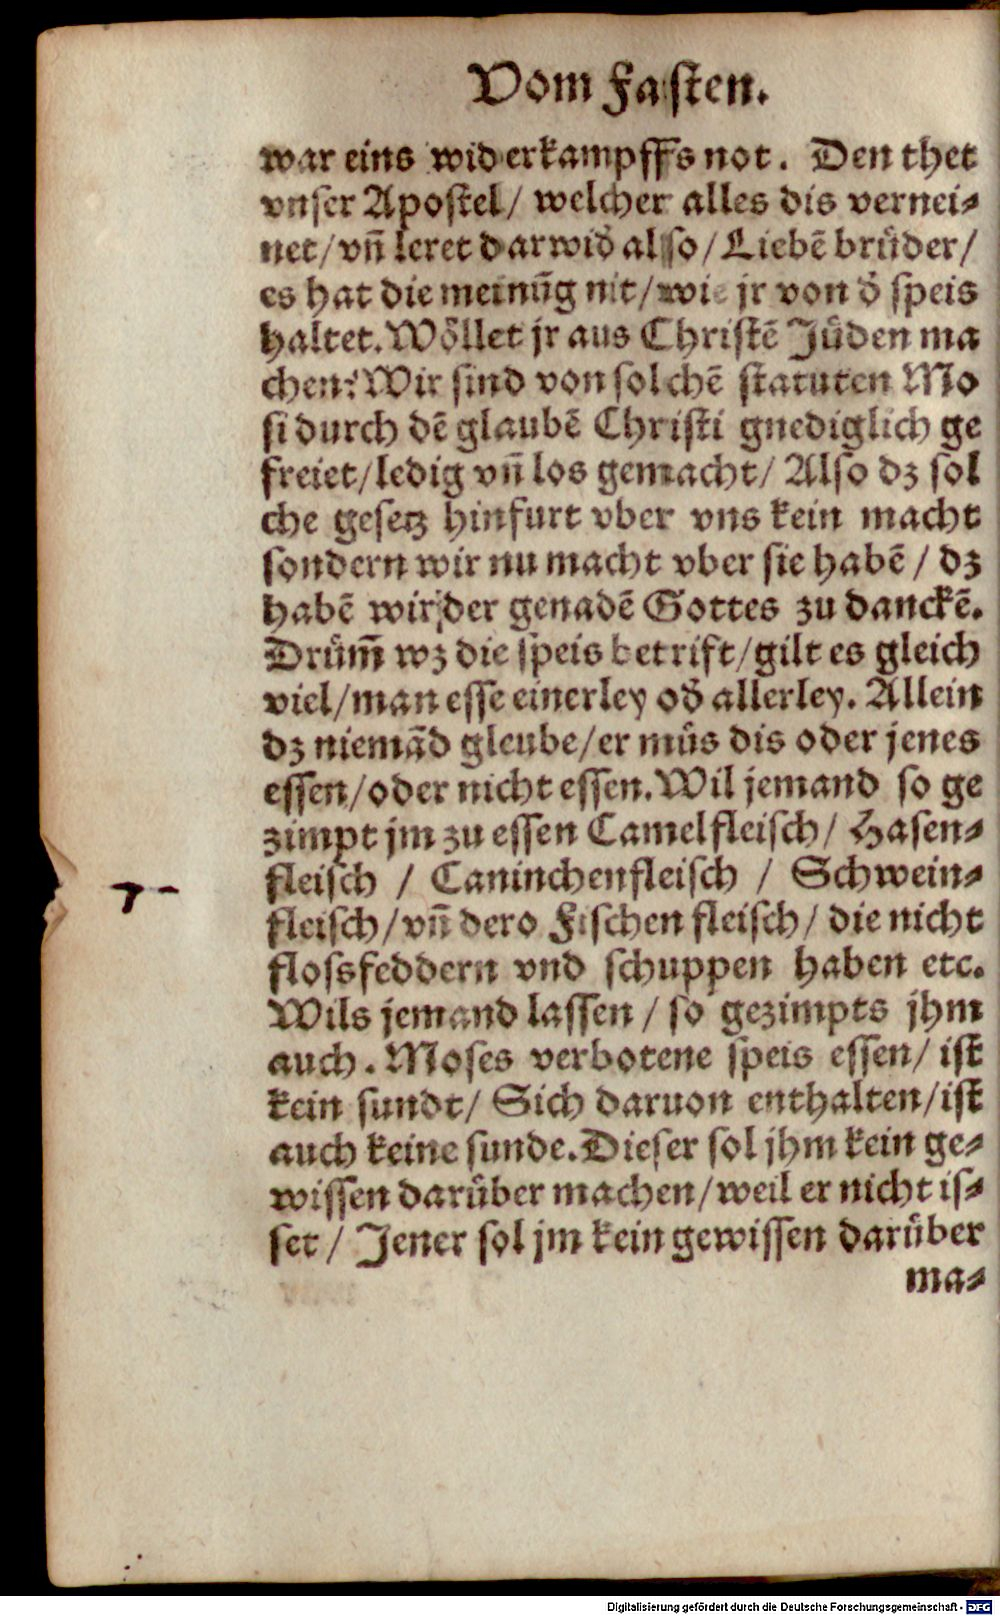 Vom Fasten.
war eins widerkampffs not. Den thet
vnser Apostel/ welcher alles dis vernei⸗
net/vñ leret darwid̕ also/Liebẽ brüder/
es hat die meinũg nit/wie jr von d̕ speis
haltet. Wöllet jr aus Christẽ Jüden ma
chen? Wir sind von solchẽ statuten Mo
si durch dẽ glaubẽ Christi gnediglich ge
freiet/ledig vñ los gemacht/ Also dz sol
che gesetz hinfurt vber vns kein macht
sondern wir nu macht vber sie habẽ / dz
habẽ wir der genadẽ Gottes zu danckẽ.
Drüm̃ wz die speis betrift/gilt es gleich
viel/man esse einerley od̕ allerley. Allein
dz niemãd gleube/er müs dis oder jenes
essen/oder nicht essen. Wil jemand so ge
zimpt jm zu essen Camelfleisch/ Hasen⸗
fleisch / Caninchenfleisch / Schwein⸗
fleisch/vñ dero Fischen fleisch/ die nicht
flossfeddern vnd schuppen haben etc.
Wils jemand lassen / so gezimpts jhm
auch. Moses verbotene speis essen/ ist
kein sundt/ Sich daruon enthalten/ist
auch keine sunde. Dieser sol jhm kein ge⸗
wissen darüber machen/weil er nicht is⸗
set / Jener sol jm kein gewissen darüber
ma⸗
Digitalisierung gefördert durch die Deutsche Forschungsgemeinschaft - DFG